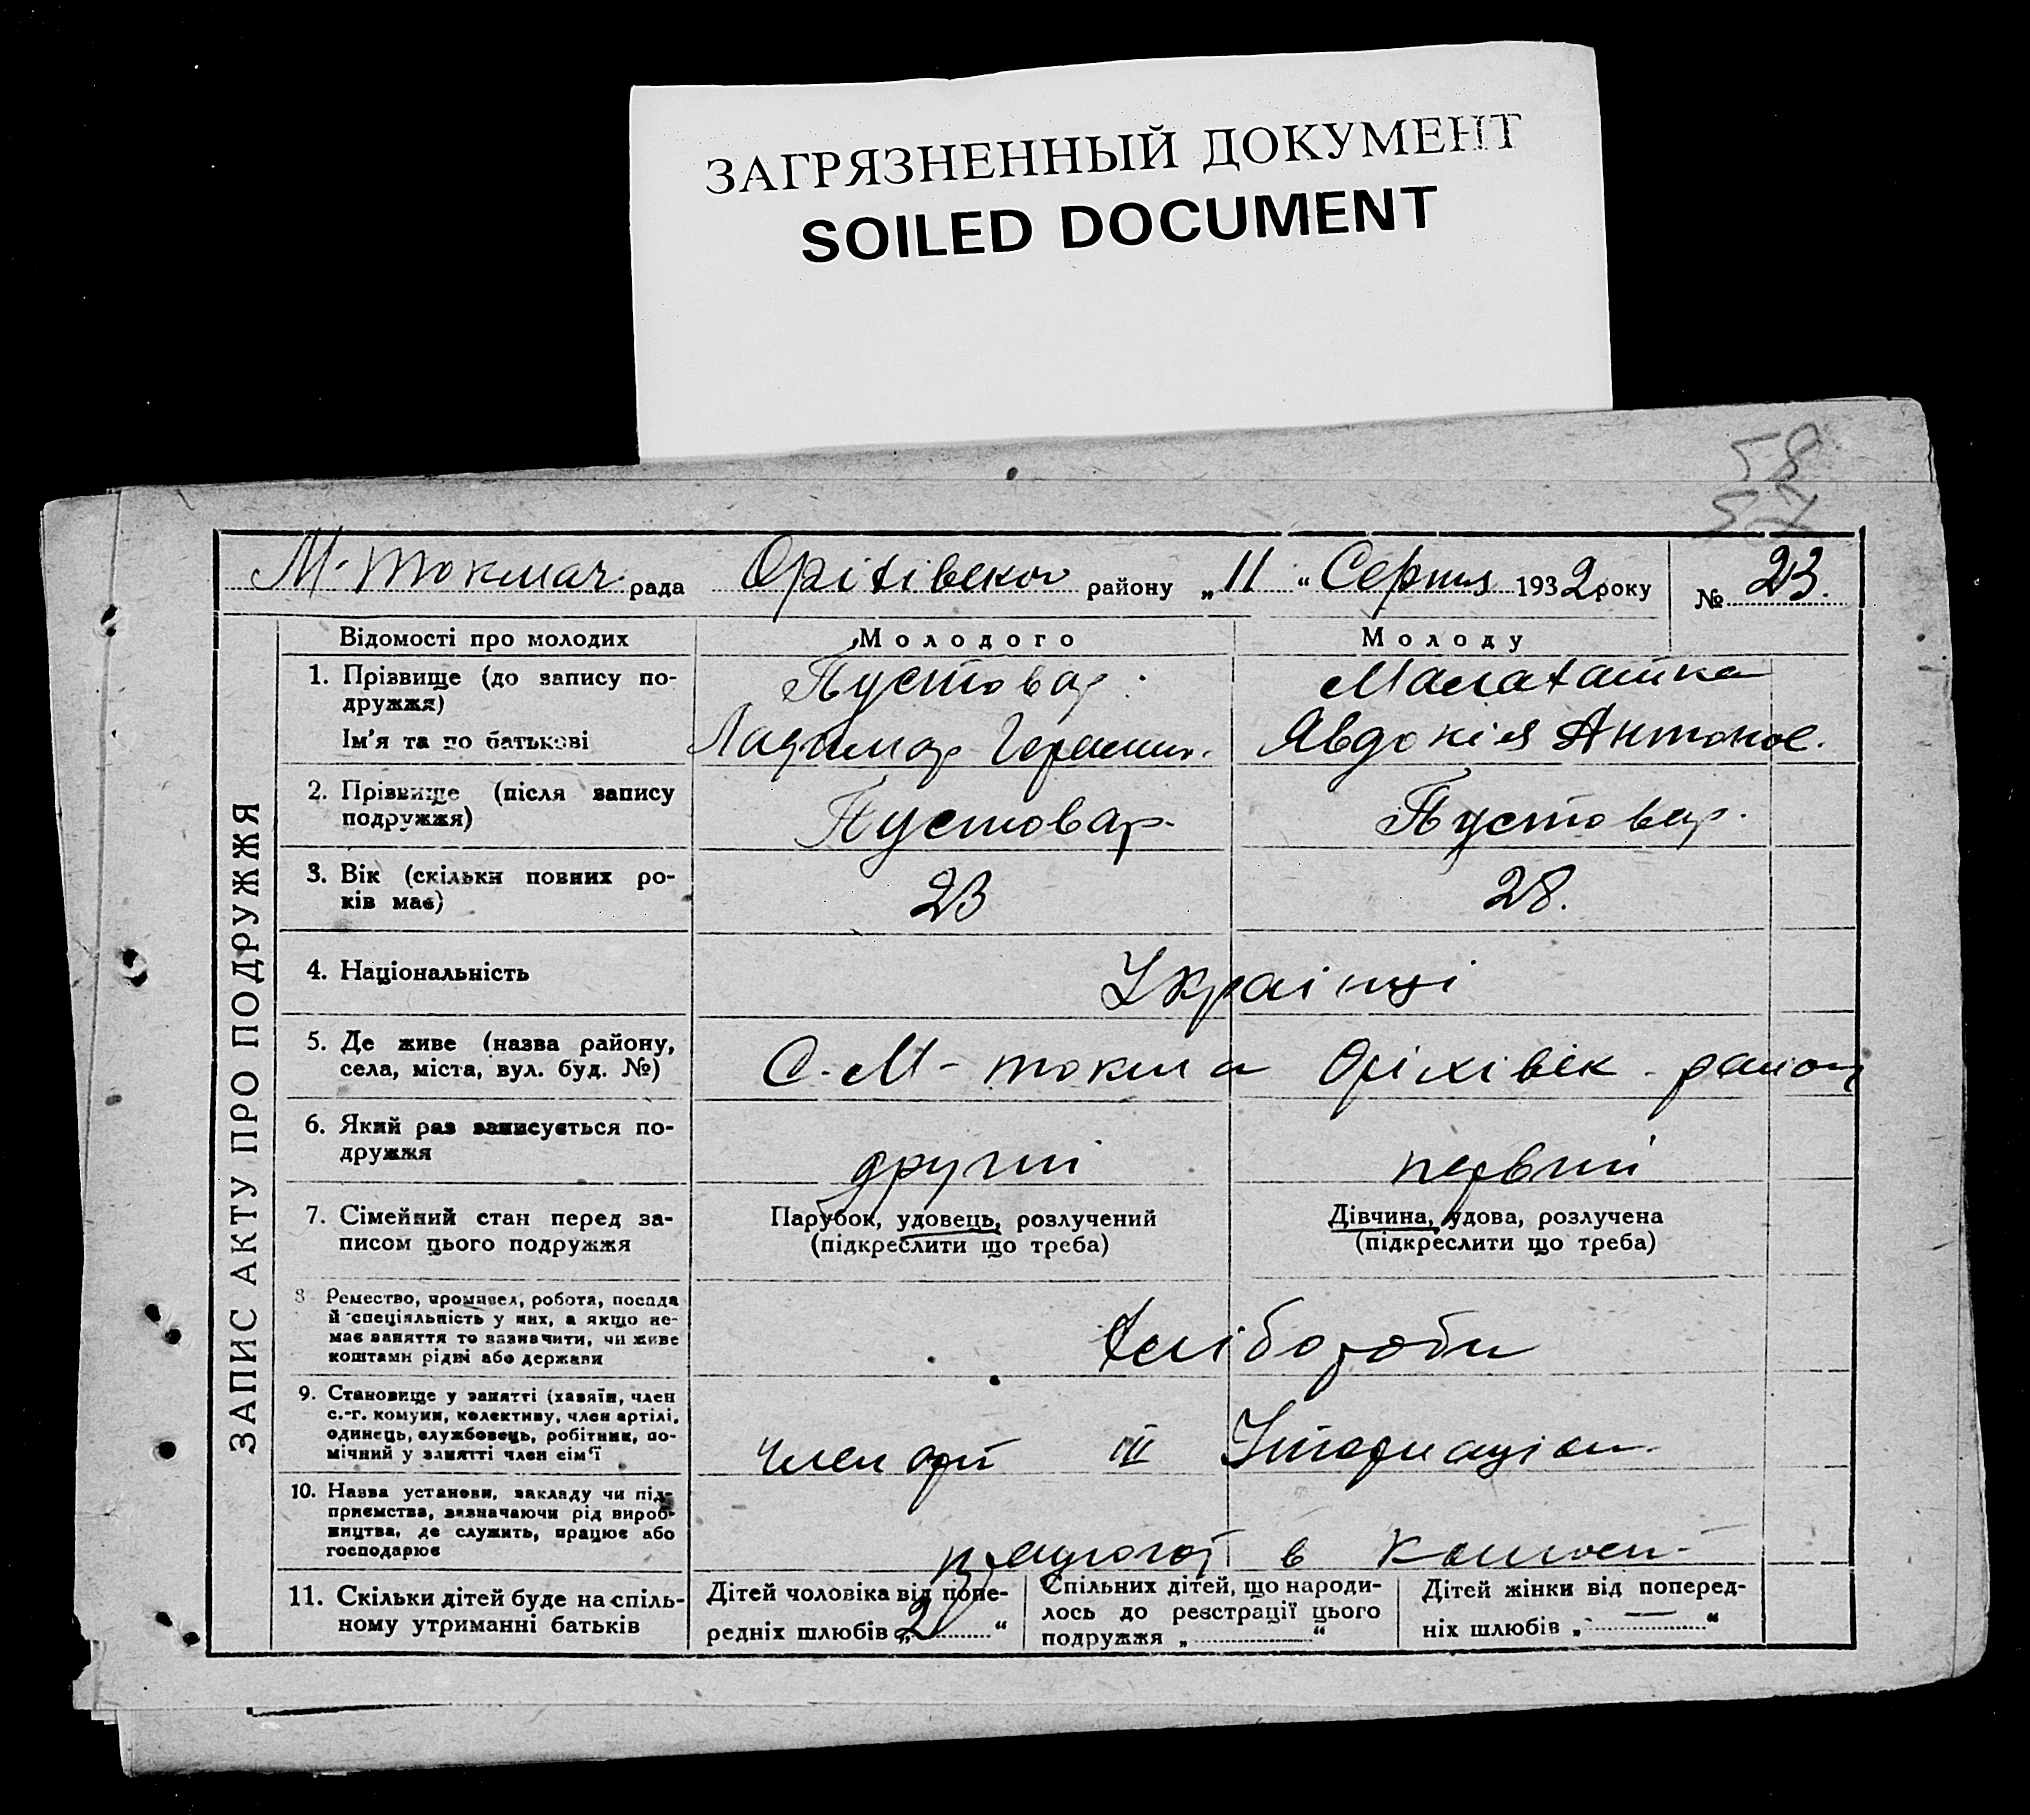 ЗАГРЯЗНЕННЫЙ ДОКУМЕНТ
SOILED DOCUMENT
58
57
М-токмач рада Оріхівськ району „11“ Серпня 1932 року № 23.
ЗАПИС АКТУ ПРО ПОДРУЖЖЯ
Відомості про молодих
Молодого
Молоду
1. Прізвище (до запису по-
дружжя)
Ім'я та по батькові
Пустовар.
Малаташка
Явдокія Антонов.
2. Прізвище (після запису
подружжя)
Пустовар.
Пустовар.
3. Вік (скільки повних ро-
ків має)
23
28.
4. Національність
Українці
5. Де живе (назва району,
села, міста, вул. буд. №)
С. М-токма Оріхівськ. району
6. Який раз записується по-
дружжя
другий
первий
7. Сімейний стан перед за-
писом цього подружжя
Парубок, удовець, розлучений
(підкреслити що треба)
Дівчина, удова, розлучена
(підкреслити що треба)
8 Ремество, промисел, робота, посада
й спеціяльність у них, а якщо не-
має заняття то зазначити, чи живе
коштами рідні або держави
Хлібороби
9. Становище у занятті (хазяїн, член
с.-г. комуни, колективу, член артілі,
одинець, службовець, робітник, по-
мічний у занятті член сім'ї
член арт III Інтернаціон.
10. Назва установи, закладу чи під-
приємства, зазначаючи рід вироб-
ництва, де служить, працює або
господарює
працюют в
11. Скільки дітей буде на спіль-
ному утриманні батьків
Дітей чоловіка від попе-
редніх шлюбів „2“
Спільних дітей, що народи-
лось до реєстрації цього
подружжя „ “
Дітей жінки від поперед-
ніх шлюбів „—“